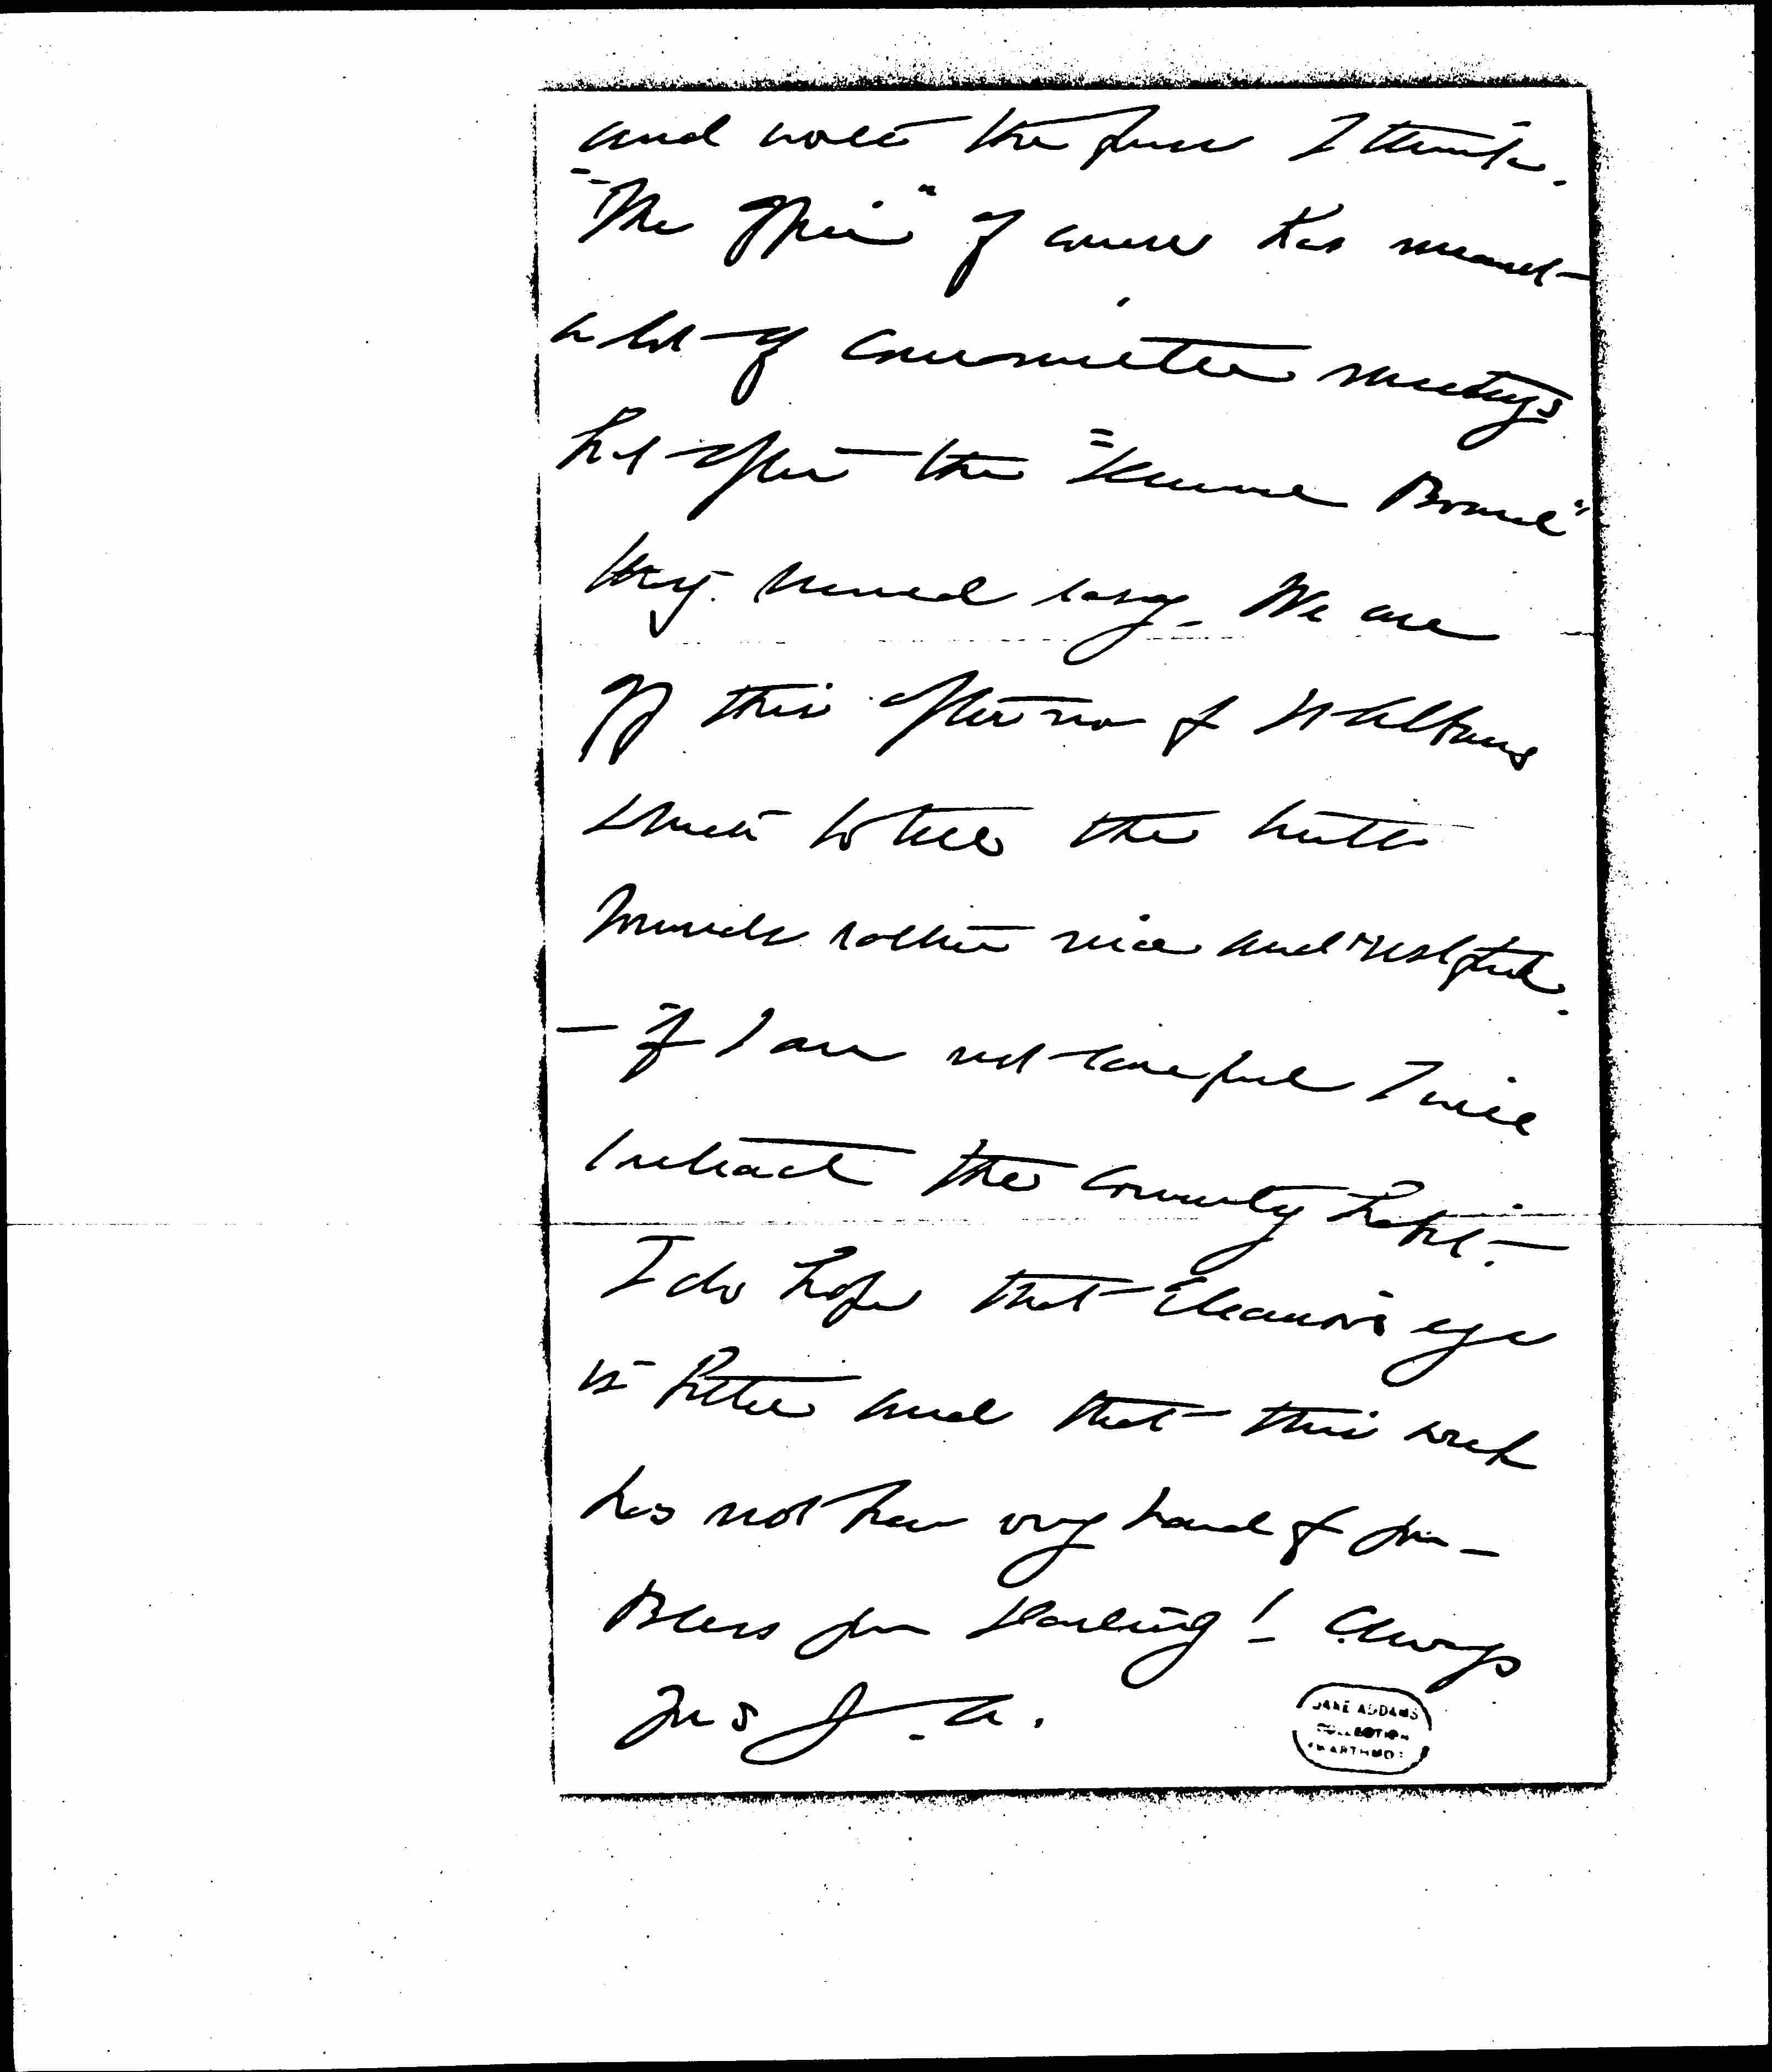 and worth the fuss I think.
"The Office" of course has meant
a lot of committee meetings
but after the "School Board"
they seemed easy. We are
off this afternoon for Waltham
which to tell the truth
sounds rather nice and restful.
— if I am not careful I will
contract the country habit.—
I do hope that Eleanor's eye
is better and that this week
has not been very hard for you —
Bless you darling! Always
Yrs J. A.
JANE ADDAMS
COLLECTION
SWARTHMORE